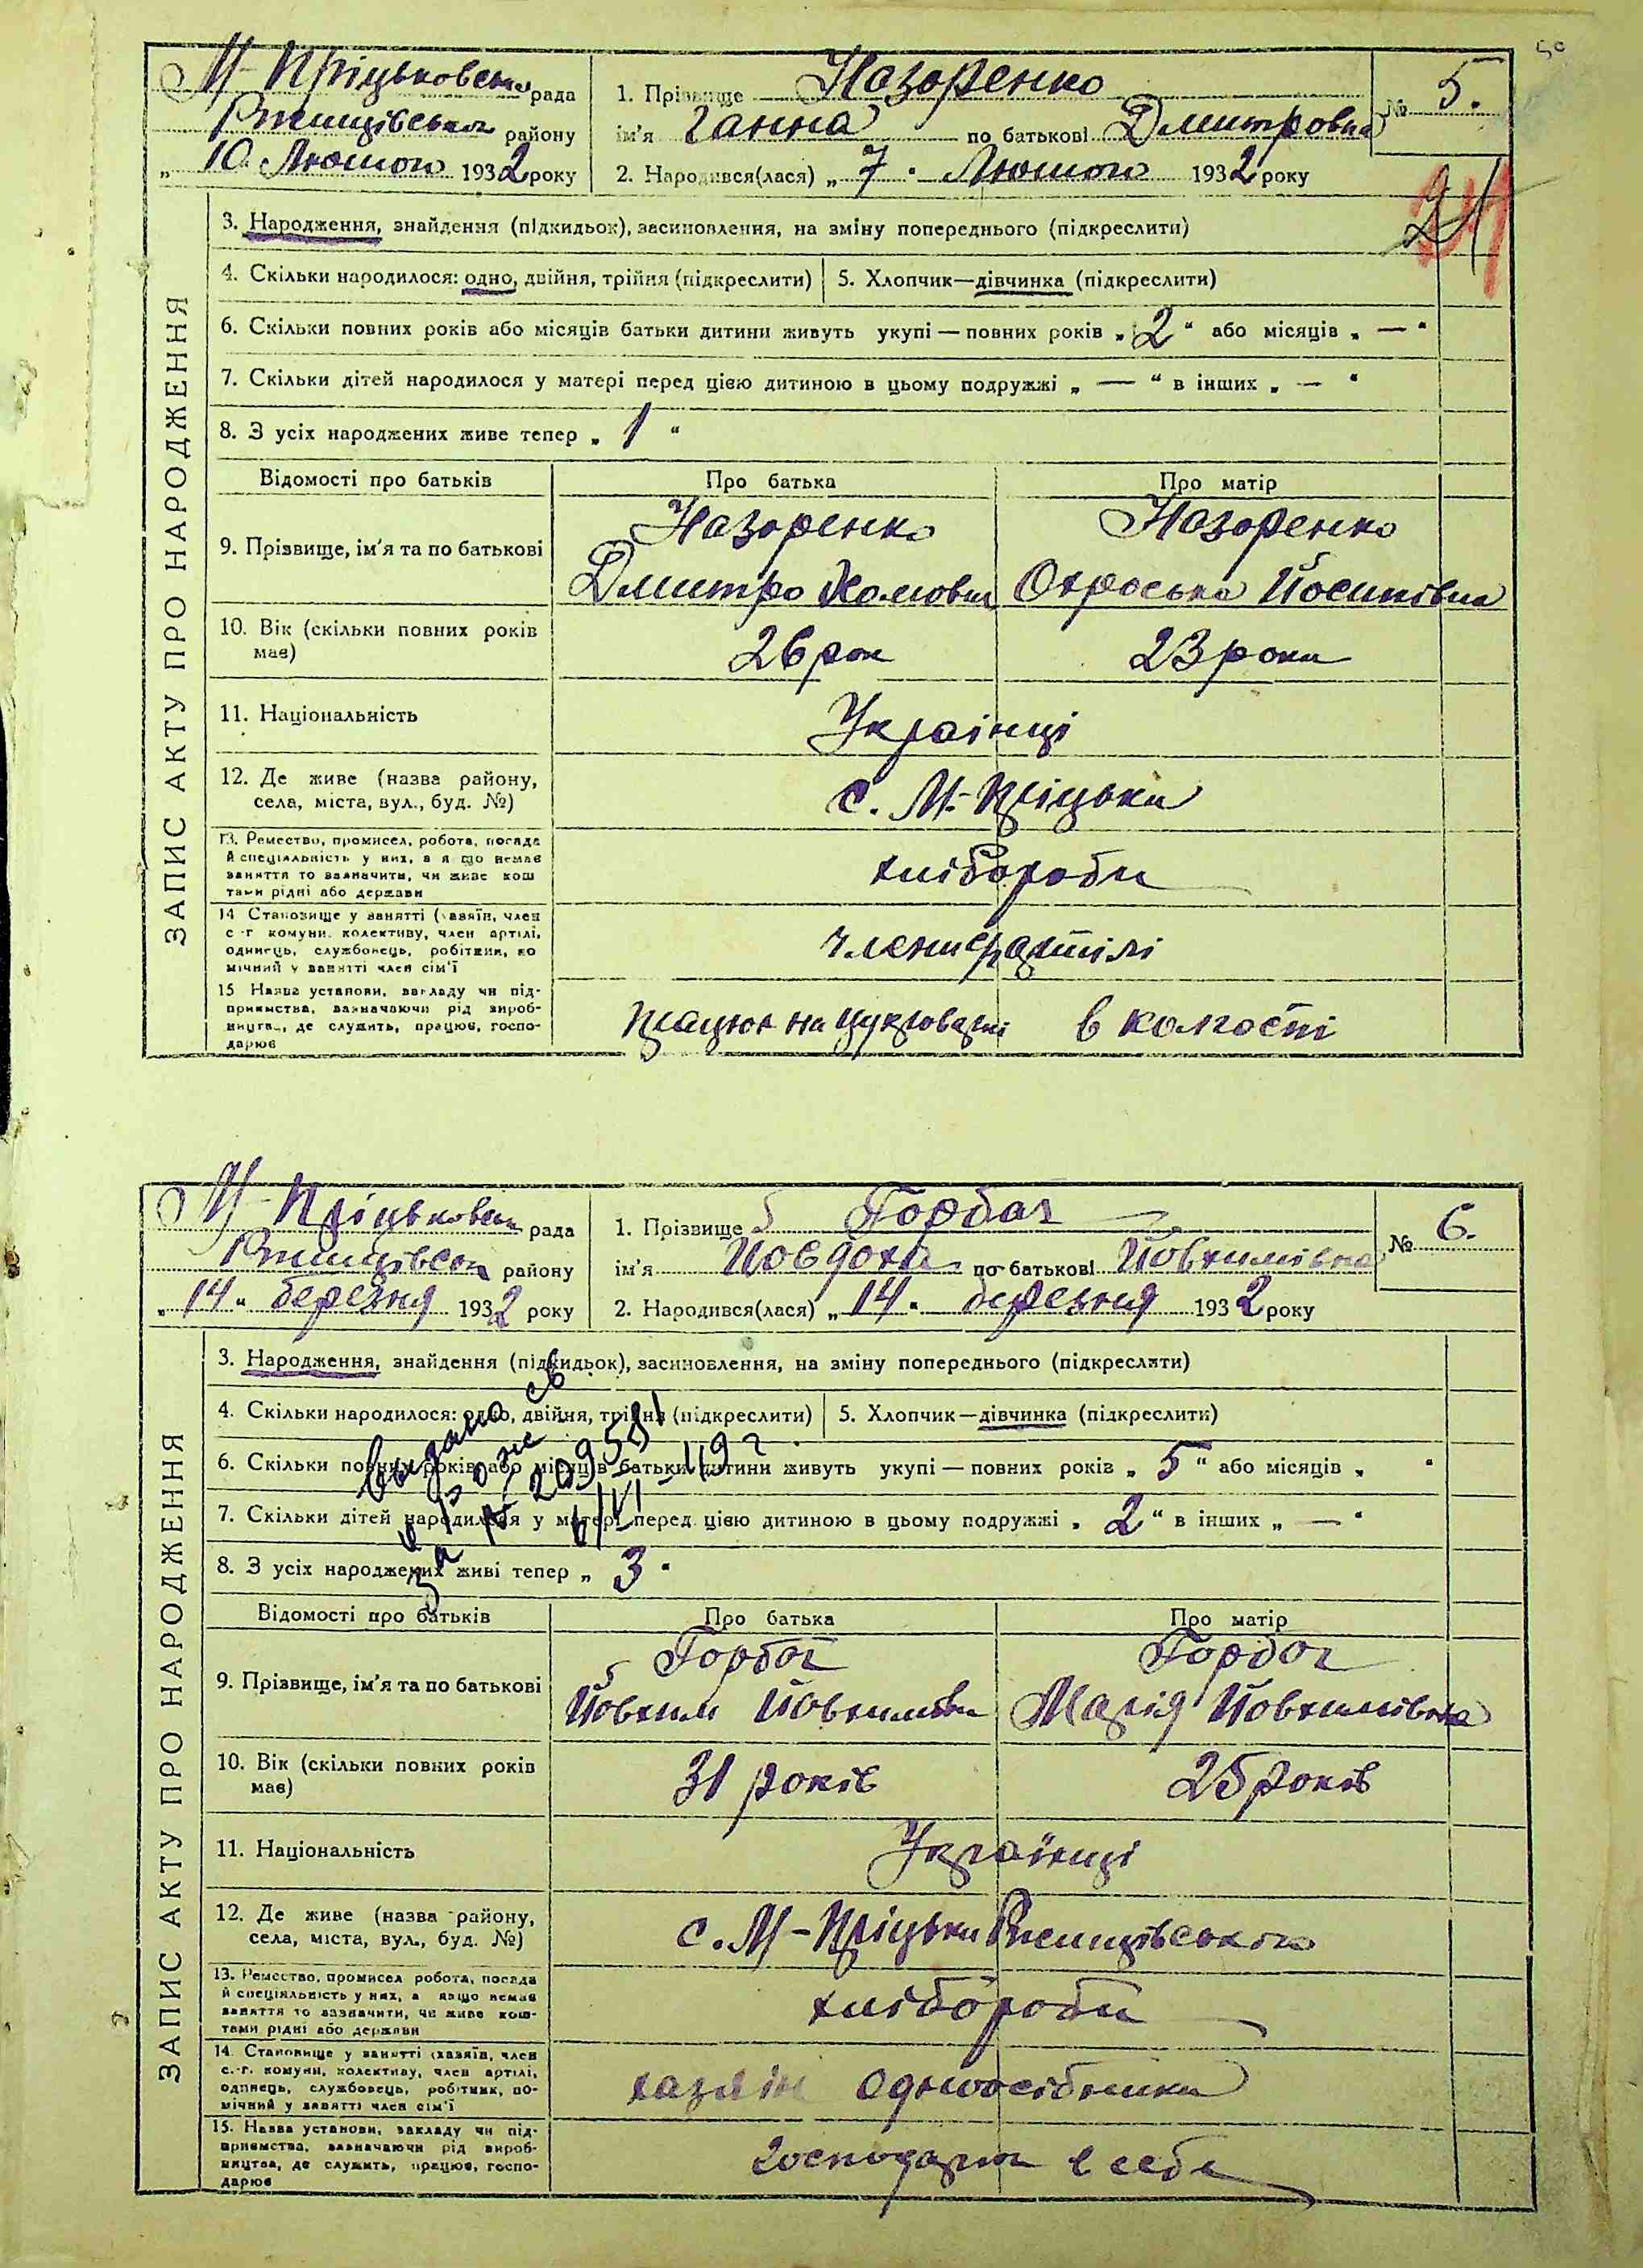 50
М-Пріцьковська рада
Ржищівська району
„ 10 „ Лютого 1932 року
1. Прізвище Назаренко
ім'я Ганна по батькові Дмитровна
2. Народився(лася) „ 7 " Лютого 1932 року
№ 5.
ЗАПИС АКТУ ПРО НАРОДЖЕННЯ
3. Народження, знайдення (підкидьок), засиновлення, на зміну попереднього (підкреслити)
4. Скільки народилося: одно, двійня, трійня (підкреслити) 5. Хлопчик—дівчинка (підкреслити)
6. Скільки повних років або місяців батьки дитини живуть укупі — повних років „ 2 " або місяців „ — "
7. Скільки дітей народилося у матері перед цією дитиною в цьому подружжі „ — " в інших „ — "
8. З усіх народжених живе тепер „ 1 "
Відомості про батьків Про батька Про матір
9. Прізвище, ім'я та по батькові
Назаренко Назаренко
Дмитро Хомович Охроська Йосипівна
10. Вік (скільки повних років має)
26 рок 23 роки
11. Національність Українці
12. Де живе (назва району,
села, міста, вул., буд. №)
с. М.-Пріцьки
13. Ремество, промисел, робота, посада
й спеціяльність у них, а якщо немає
заняття то зазначити, чи живе кош
тами рідні або держави
хлібороби
14 Становище у занятті (хазяїн, член
с.-г комуни. колективу, член артілі,
одинець, службовець, робітник, по
мічний у занятті член сім'ї
члени артілі
15 Назва установи, закладу чи під-
приємства, зазначаючи рід вироб-
ництва, де служить, працює, госпо-
дарює
Працює на цукроварні в колгоспі
М-Пріцьковська рада
Ржищівська району
„ 14 " березня 1932 року
1. Прізвище Горбач
ім'я Йовдоха по-батькові Йовхимівна
2. Народився(лася) „ 14 " березня 1932 року
№ 6.
ЗАПИС АКТУ ПРО НАРОДЖЕННЯ
3. Народження, знайдення (підкидьок), засиновлення, на зміну попереднього (підкреслити)
4. Скільки народилося: одно, двійня, трійня (підкреслити) 5. Хлопчик—дівчинка (підкреслити)
6. Скільки повних років або місяців батьки дитини живуть укупі — повних років „ 5 " або місяців „ "
7. Скільки дітей народилося у матері перед цією дитиною в цьому подружжі „ 2 " в інших „ — "
8. З усіх народжених живі тепер „ 3 "
Выдано св
о рожд
за №
Відомості про батьків Про батька Про матір
9. Прізвище, ім'я та по батькові
Горбач Горбач
Йовхим Йовхимович Марія Йовхимівна
10. Вік (скільки повних років
має)
31 років 25 років
11. Національність Українці
12. Де живе (назва району,
села, міста, вул., буд. №)
с. М-Пріцьки Ржищівського
13. Ремество, промисел робота, посада
й спеціяльність у них, а якщо немає
заняття то зазначити, чи живе кош-
тами рідні або держави
хлібороби
14. Становище у занятті (хазяїн, член
с.-г. комуни, колективу, член артілі,
одинець, службовець, робітник, по-
мічний у занятті член сім'ї
хазяїн одноосібники
15. Назва установи, закладу чи під-
приємства, зазначаючи рід вироб-
ництва, де служить, працює, госпо-
дарює
господарює в себе